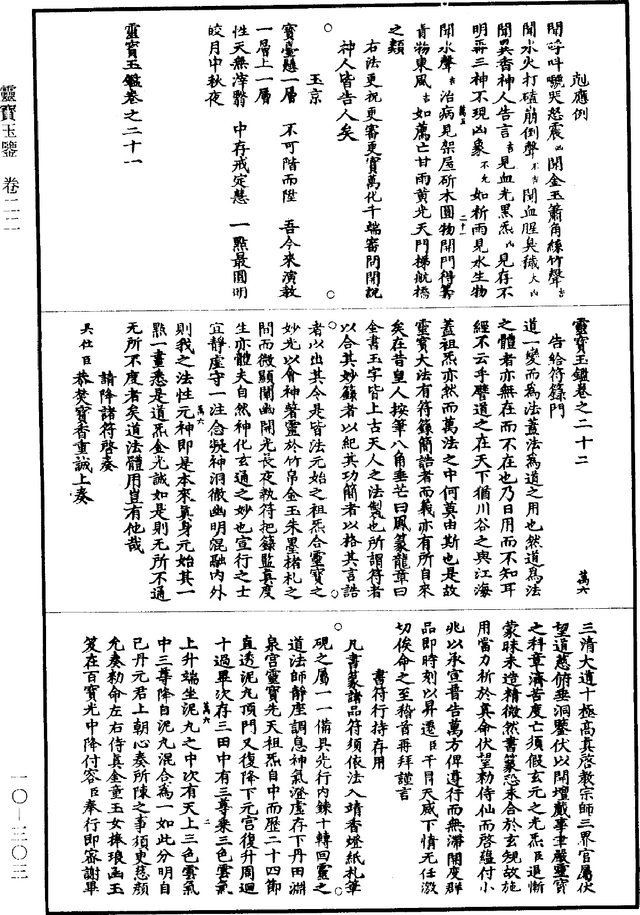 剋應例
聞呼呌號哭怒震凶聞金玉簫角絲竹聲吉
聞水火打磕崩倒聲不吉聞血腥臭穢大凶
聞異香神人告言吉見血光黑炁凶見存不
明再三神不現凶象不允如祈雨見水生物
聞水聲吉治病見架屋斫木圓物開門得籌
青物東風吉如薦亡甘雨黃光天門梯航橋
之類
右法更祝更審更實萬化千端審問開說
神人皆告人矣
玉京
寶臺懸一層　不可階而陞　吾今來演教
一層上一層
性天無滓翳　中存戒定慧　一點最圓明
皎月中秋夜
靈寶玉鑑卷之二十一
靈寶玉鑑卷之二十二　萬六
告給符籙門
道一變而為法蓋法為道之用也然道為法
之體者亦無在而不在也乃日用而不知耳
經不云乎譬道之在天下猶川谷之與江海
蓋祖炁亦然而萬法之中何莫由斯也是故
靈寶大法有符籙簡誥者而義亦有所自來
矣在昔皇人按筆八角垂芒曰風篆龍章曰
金書玉字皆上古天人之法製也所謂符者
以合其妙籙者以紀其功簡者以格其言誥
者以出其令是皆法元始之祖炁合靈寶之
妙光以會神著靈於竹帛金玉朱墨楮札之
間而微顯闡幽開光長夜執符把籙監真度
生亦體夫自然神化玄通之妙也宣行之士
宜靜虛守一注念凝神洞徹幽明混融內外
則我之法性元神即是本來真身元始其一
點一畫悉是道炁金光誠如是則無所不通
無所不度者矣道法體用豈有他哉
請降諸符啓奏
具位臣恭焚寶香重誠上奏
三清大道十極高真啓教宗師三界官屬伏
望道慈俯垂洞鑒伏以開壇戲事聿嚴靈寶
之科章濟苦度亡須假玄元之光炁臣退慚
蒙昧未造精微然書篆恐未合於玄規故施
用當力祈於真命伏望勑侍仙而啓蘊付小
兆以承宣普告萬方俾遵行而無滯開度群
品即時刻以昇遷臣干冒天威下情無任激
切俟命之至稽首再拜謹言
書符行持存用
凡書篆諸品符須依法入靖香燈紙札筆
硯之屬一一備具先行內鍊十轉回靈之
道法師靜座調息神氣澄虛存下丹田淵
泉宮靈寶先天祖炁自中而歷二十四節
直透泥丸頂門又復降下元宮復升周迴
十過畢次存三田中有三尊乘三色雲氣
上升端坐泥丸之中次有天上三色雲氣
中三尊降自泥丸混合為一如此分明自
己丹元君上朝心奏所陳之事須更慈顏
允奏勑命左右侍真金童玉女捧琅函玉
笈在百寶光中降付容臣奉行即容謝畢
靈寶玉鑒　卷二二
一〇—三〇三